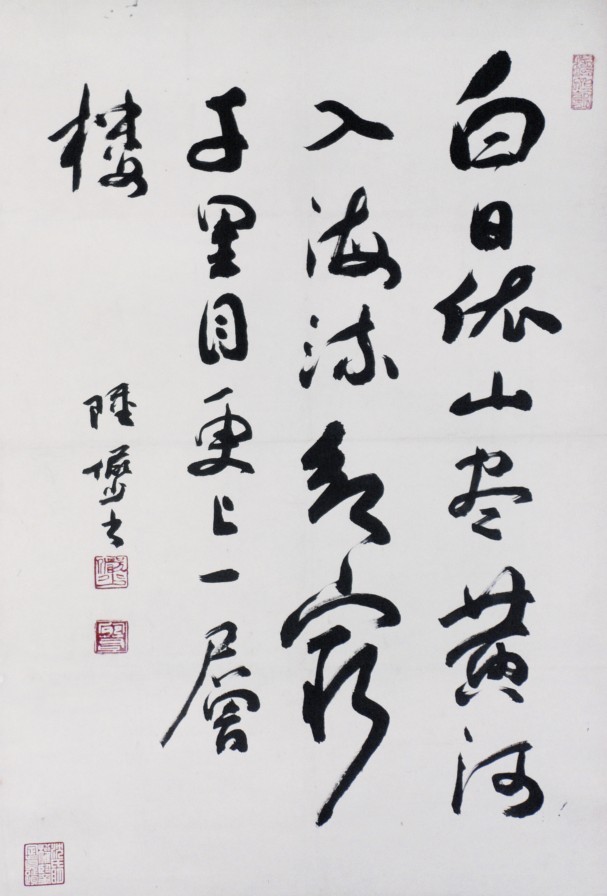 白日依山尽黄河
入海流欲穷
千里目更上一層
楼
陸儼少